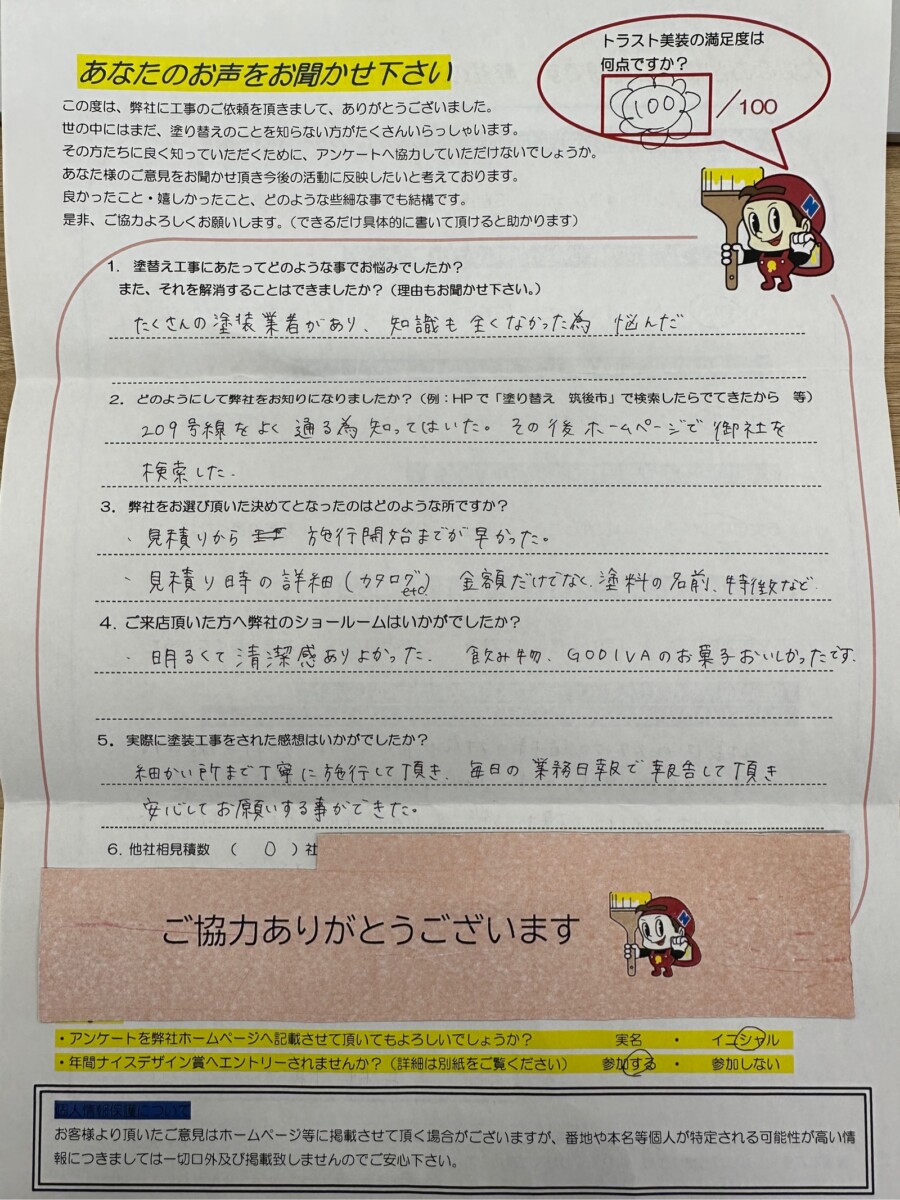 あなたのお声をお聞かせ下さい
トラスト美装の満足度は
何点ですか?
100/100
この度は、弊社に工事のご依頼を頂きまして、ありがとうございました。
世の中にはまだ、塗り替えのことを知らない方がたくさんいらっしゃいます。
その方たちに良く知っていただくために、アンケートへ協力していただけないでしょうか。
あなた様のご意見をお聞かせ頂き今後の活動に反映したいと考えております。
良かったこと・嬉しかったこと、どのような些細な事でも結構です。
是非、ご協力よろしくお願いします。(できるだけ具体的に書いて頂けると助かります)
N
1. 塗替え工事にあたってどのような事でお悩みでしたか?
また、それを解消することはできましたか?(理由もお聞かせ下さい。)
たくさんの塗装業者があり、知識も全くなかった為 悩んだ
2. どのようにして弊社をお知りになりましたか?(例:HPで「塗り替え 筑後市」で検索したらでてきたから 等)
209号線をよく通る為知ってはいた。その後ホームページで御社を
検索した.
3. 弊社をお選び頂いた決めてとなったのはどのような所ですか?
・見積りから 施行開始までが早かった。
・見積り時の詳細(カタログetc) 金額だけでなく、塗料の名前、特徴など.
4. ご来店頂いた方へ弊社のショールームはいかがでしたか?
・明るくて清潔感ありよかった. 飲み物、GODIVAのお菓子おいしかったです.
5. 実際に塗装工事をされた感想はいかがでしたか?
細かい所まで丁寧に施行して頂き、毎日の業務日報で報告して頂き
安心してお願いする事ができた。
6. 他社相見積数 ( 0 )社
ご協力ありがとうございます
N
・アンケートを弊社ホームページへ記載させて頂いてもよろしいでしょうか? 実名 ・ イニシャル
・年間ナイスデザイン賞へエントリーされませんか?(詳細は別紙をご覧ください) 参加する ・ 参加しない
個人情報保護について
お客様より頂いたご意見はホームページ等に掲載させて頂く場合がございますが、番地や本名等個人が特定される可能性が高い情
報につきましては一切口外及び掲載致しませんのでご安心下さい。